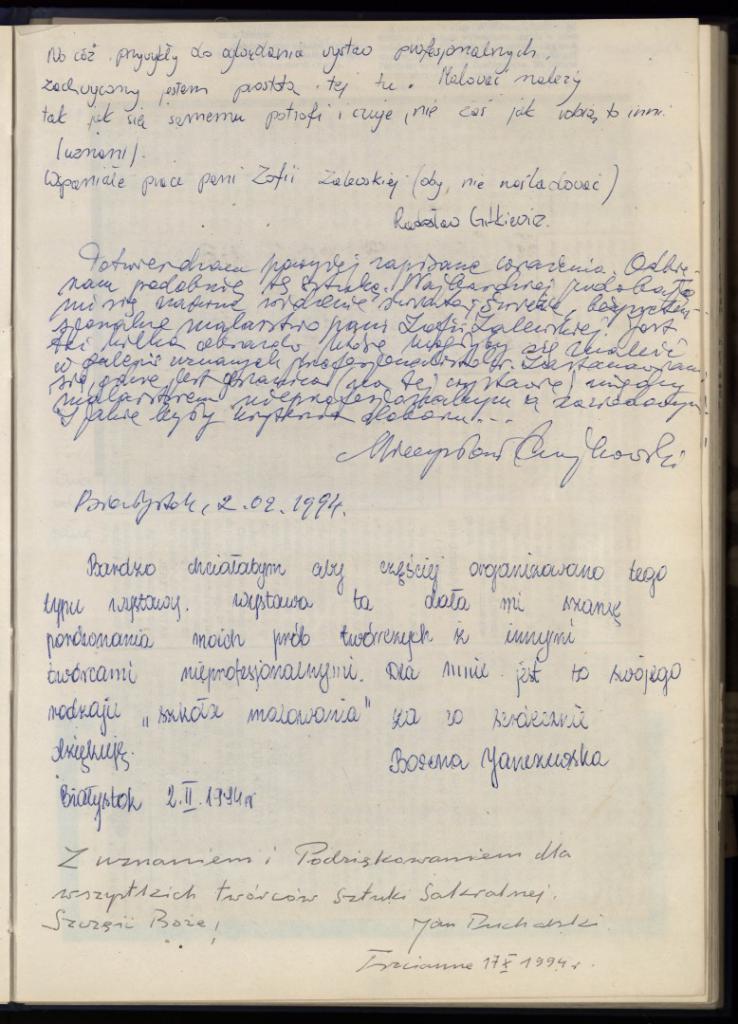 No cóż, przywykły do oglądania wystaw profesjonalnych,
zachwycony jestem prostotą tej tu. Malować należy
tak jak się samemu potrafi i czuje, nie zaś jak robią to inni
(uznani).
Wspaniałe prace pani Zofii Zalewskiej (oby, nie naśladować)
Radosław Gitkiewicz.
Potwierdzam powyżej zapisane wrażenia. Odbie-
ram podobnie tę sztukę. Najbardziej podoba
mi się naiwne widzenie świata,
malarstwo pani Zofii Zalewskiej. Jest
też kilka obrazów które mogłyby się znaleźć
w galerii uznanych profesjonalistów. Zastanawiam
się, gdzie jest granica (na tej wystawie) między
malarstwem nieprofesjonalnym a zawodowym
I jakie były kryteria doboru...
Mieczysław
Białystok, 2.02.1994.
Bardzo chciałabym aby częściej organizowano tego
typu wystawy. Wystawa ta dała mi szansę
porównania moich prób twórczych z innymi
twórcami nieprofesjonalnymi. Dla mnie jest to swojego
rodzaju „szkoła malowania" za co serdecznie
dziękuję.
Bożena Janczewska
Białystok 2.II.1994r
Z uznaniem i Podziękowaniem dla
wszystkich twórców sztuki Sakralnej.
Szczęść Boże!
Jan Bucharski
Trzcianne 17 X 1994r.